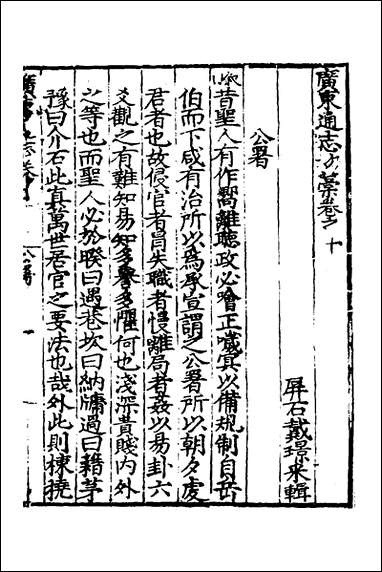 廣東通志初藁卷之十
屏石戴璟来輯
公署
昔聖人有作嚮離聽政必噲正噦冥以備規制自岳
伯而下咸有治所以為承宣謂之公署所以朝夕處
君者也故侵官者冒失職者慢離局者姦以易卦六
爻觀之有難知易知多譽多懼何也淺深貴賤内外
之等也而聖人必於睽曰遇巷坎曰納牖過曰藉茅
豫曰介石此真萬世居官之要法也哉外此則棟撓
公署
一